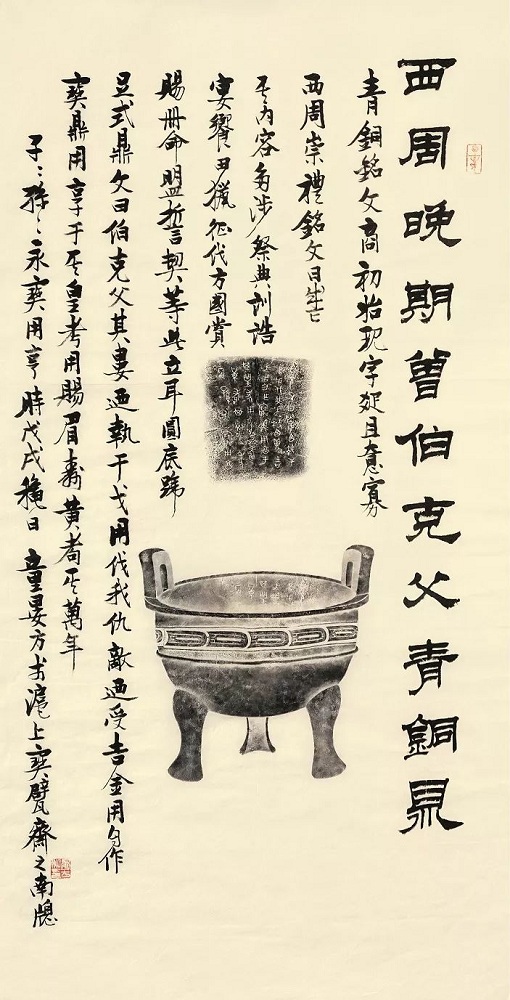 西周晚期曾伯克父青銅鼎
青銅銘文商初始現字且意寡
西周崇禮銘文日
其内容多涉祭典訓誥
宴饗田獵征伐方國賞
賜册命盟誓契等此立耳圓底蹄
足式鼎文曰伯克父其婁迺執干戈用伐我仇敵迺受吉金用自作
寶鼎用享于其皇考用賜眉壽黄耇其萬年
子〻孫〻永寶用享時戊戌穐日童晏方書滬上寶甓齋之南牕